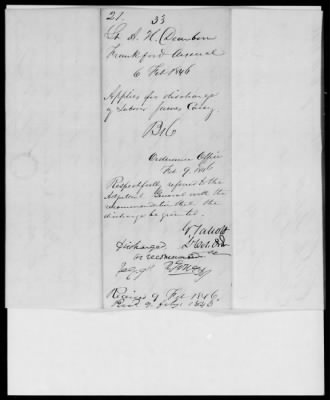 21. 33
Lt A. H. Dearborn
Frankford Arsenal
6 Feb 1846
Applies for discharge
of Labour James Casey.
B16
Ordnance Office
Feb 9. 1846
Respectfully referred to the
Adjutant General with the
recommendation that the
discharge be granted.
G. Talcott
Lt Col. Ord
Discharged
as recommended
Recd 9 Feb 1846.